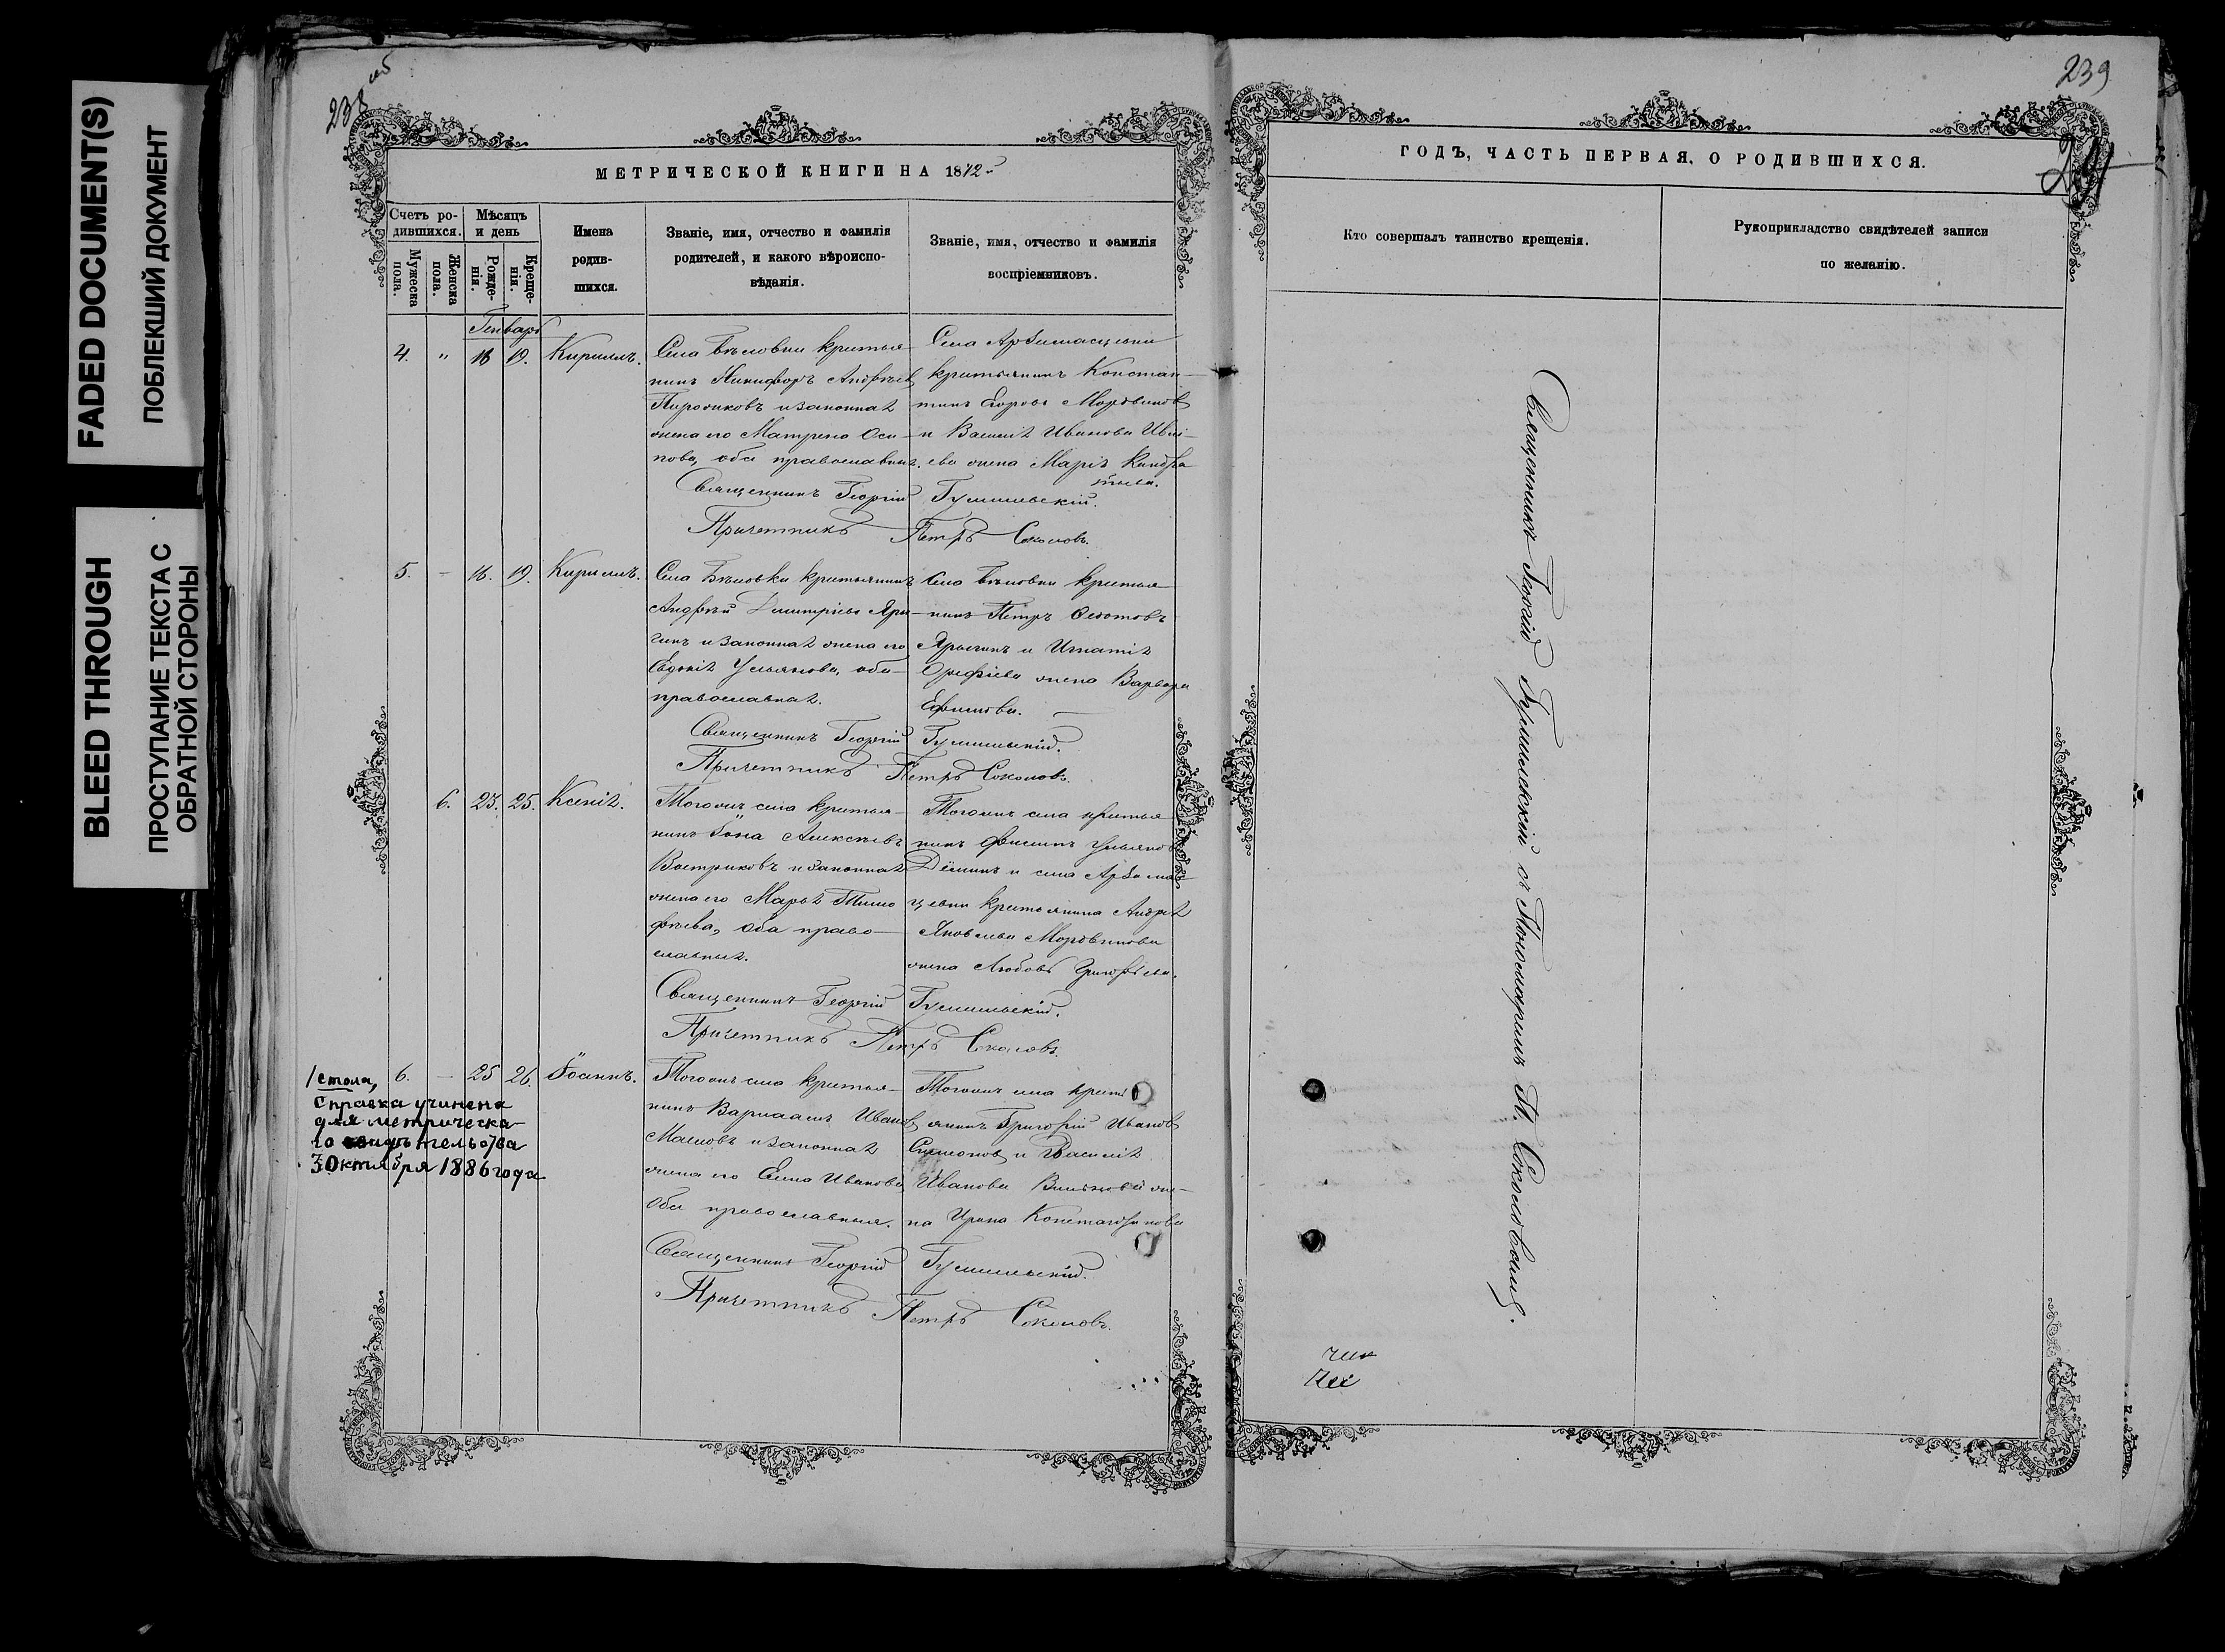 FADED DOCUMENT(S)
ПОБЛЕКШИЙ ДОКУМЕНТ
BLEED THROUGH
ПРОСТУПАНИЕ ТЕКСТА С
ОБРАТНОЙ СТОРОНЫ
238 об
МЕТРИЧЕСКОЙ КНИГИ НА 1872
Счетъ ро-
дившихся.
Мужеска
пола.
Женска
пола.
Мѣсяцъ
и день
Рожде-
нія.
Креще-
нія.
Имена
родив-
шихся.
Званіе, имя, отчество и фамилія
родителей, и какого вѣроиспо-
вѣданія.
Званіе, имя, отчество и фамилія
воспріемниковъ.
Генварь
4. " 18 19. Кириллъ.
Села Бѣловки крестья-
нинъ Никифоръ Андреевъ
и законная
жена его Матрена Оси-
пова, оба православные.
Села Арзамасцевки
крестьянинъ Констан-
тинъ Егоровъ Мордвиновъ
и Василія Иванова
жена Марія Кондра
тьева.
Священникъ Георгій Гумилевскій.
Причетникъ Петръ Соколовъ.
5. - 18. 19. Кириллъ.
Села Бѣловки крестьянинъ
Андрей Димитріевъ Яры-
гинъ и законная жена его
Евдокія Ульянова, оба
православные.
Села Бѣловки крестья
нинъ Петръ Федотовъ
Ярыгинъ и Игнатія
жена Варвара
Ефимова.
Священникъ Георгій Гумилевскій.
Причетникъ Петръ Соколовъ.
6. 23. 25. Ксенія.
Тогожъ села крестья-
нинъ Іона Алексѣевъ
Востриковъ и законная
жена его Марья Тимо
фѣева, оба право-
славные.
Тогожъ села крестья
нинъ Филипъ Ульяновъ
Дёминъ и села Арзамас
цевки крестьянина Андрея
Яковлева Мордвинова
жена Любовь Григорьева.
Священникъ Георгій Гумилевскій.
Причетникъ Петръ Соколовъ.
6. - 25 26. Іоаннъ.
Тогожъ села крестья-
нинъ Варлаамъ Ивановъ
Масловъ и законная
жена его Елена Иванова,
Оба православные.
Тогожъ села крест
янинъ Григорій Ивановъ
и Василія
Иванова же-
на Ирина Константинова
Священникъ Георгій Гумилевскій.
Причетникъ Петръ Соколовъ.
1 стола,
Справка учинена
для метрическа-
го свидѣтельства
30 октября 1886 года
239
ГОДЪ, ЧАСТЬ ПЕРВАЯ, О РОДИВШИХСЯ.
Кто совершалъ таинство крещенія.
Рукоприкладство свидѣтелей записи
по желанію.
Священникъ Георгій Гумилевскій съ Пономаремъ П. Соколовымъ.